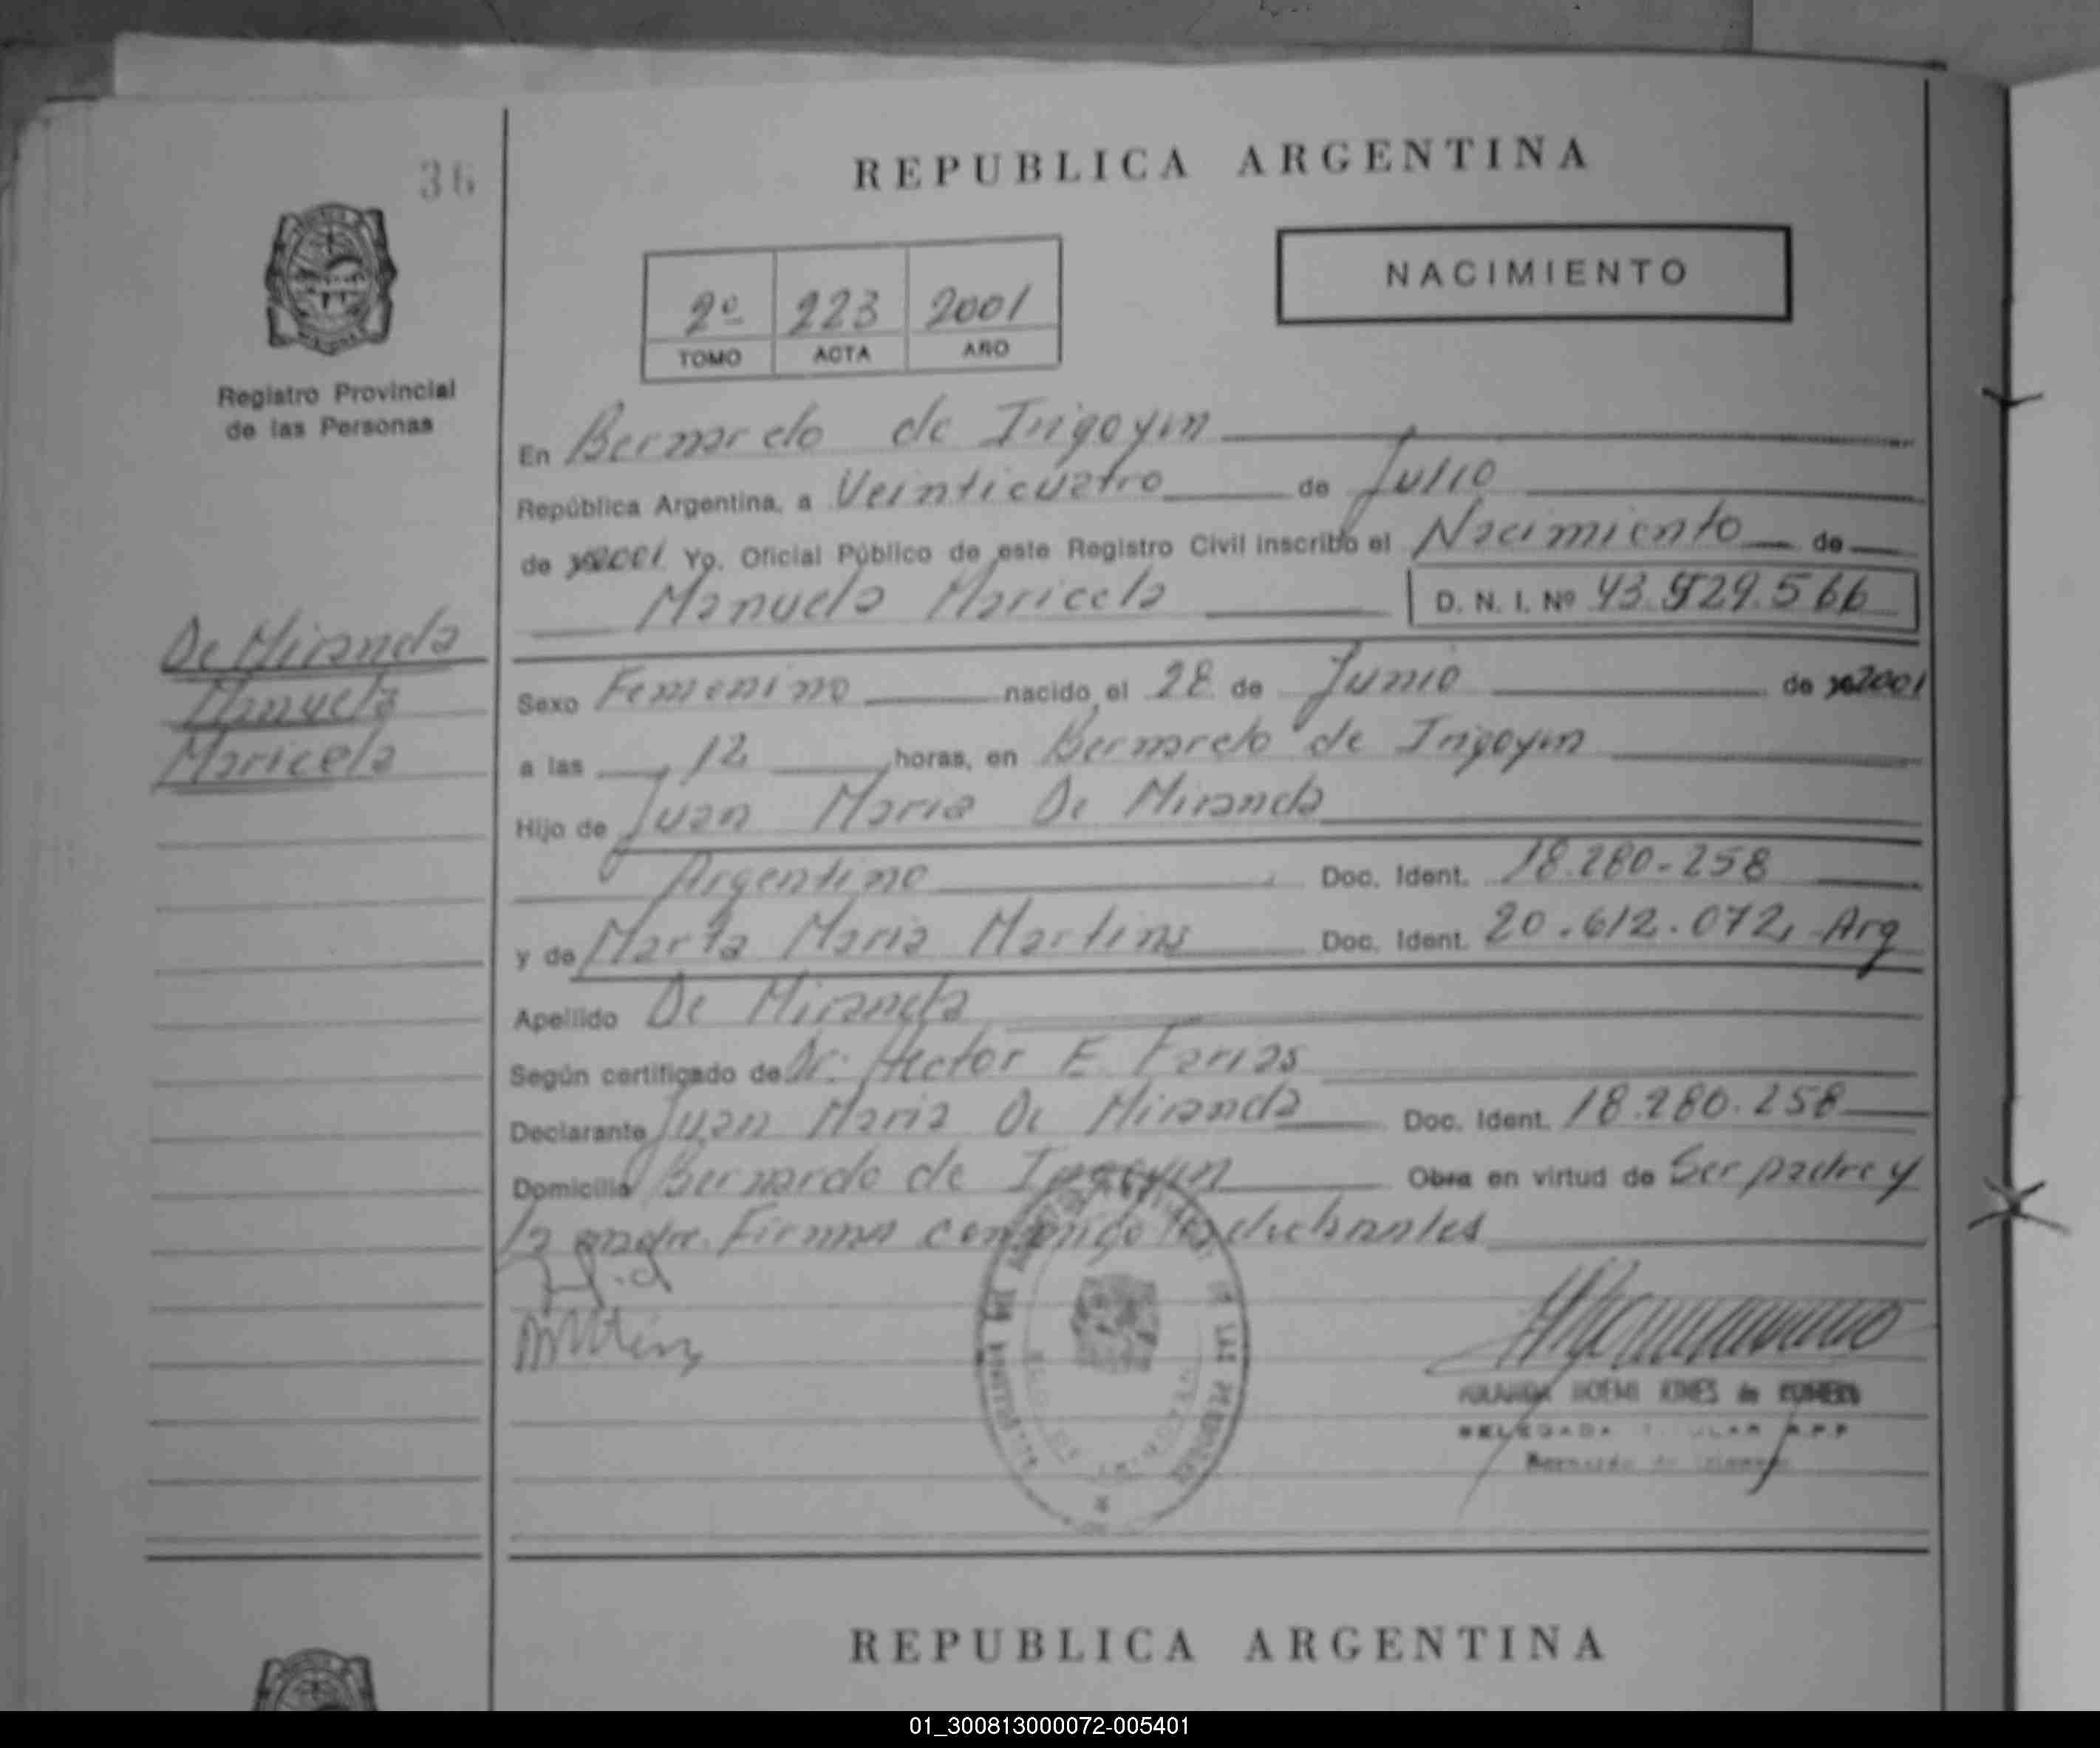 36
REPUBLICA ARGENTINA
NACIMIENTO
2º 223 2001
TOMO ACTA AÑO
Registro Provincial
de las Personas
En Bernardo de Irigoyen
República Argentina, a Veinticuatro de Julio
de 2001 Yo, Oficial Público de este Registro Civil inscribo el Nacimiento de
Manuela Maricela D. N. I. Nº 43.529.566
De Miranda
Manuela
Maricela
Sexo Femenino nacido el 28 de Junio de 2001
a las 12 horas, en Bernardo de Irigoyen
Hijo de Juan Maria De Miranda
Argentino Doc. Ident. 18.280-258
y de Marta Maria Martins Doc. Ident. 20.612.072, Arg
Apellido De Miranda
Según certificado de Dr. Hector E. Farias
Declarante Juan Maria De Miranda Doc. Ident. 18.280.258
Domicilio Bernardo de Irigoyen Obra en virtud de Ser padre y
la madre. Firman conmigo los declarantes
NOEMI de ROMERO
DELEGADA TITULAR R.P.P
Bernardo de Irigoyen
REPUBLICA ARGENTINA
01_300813000072-005401